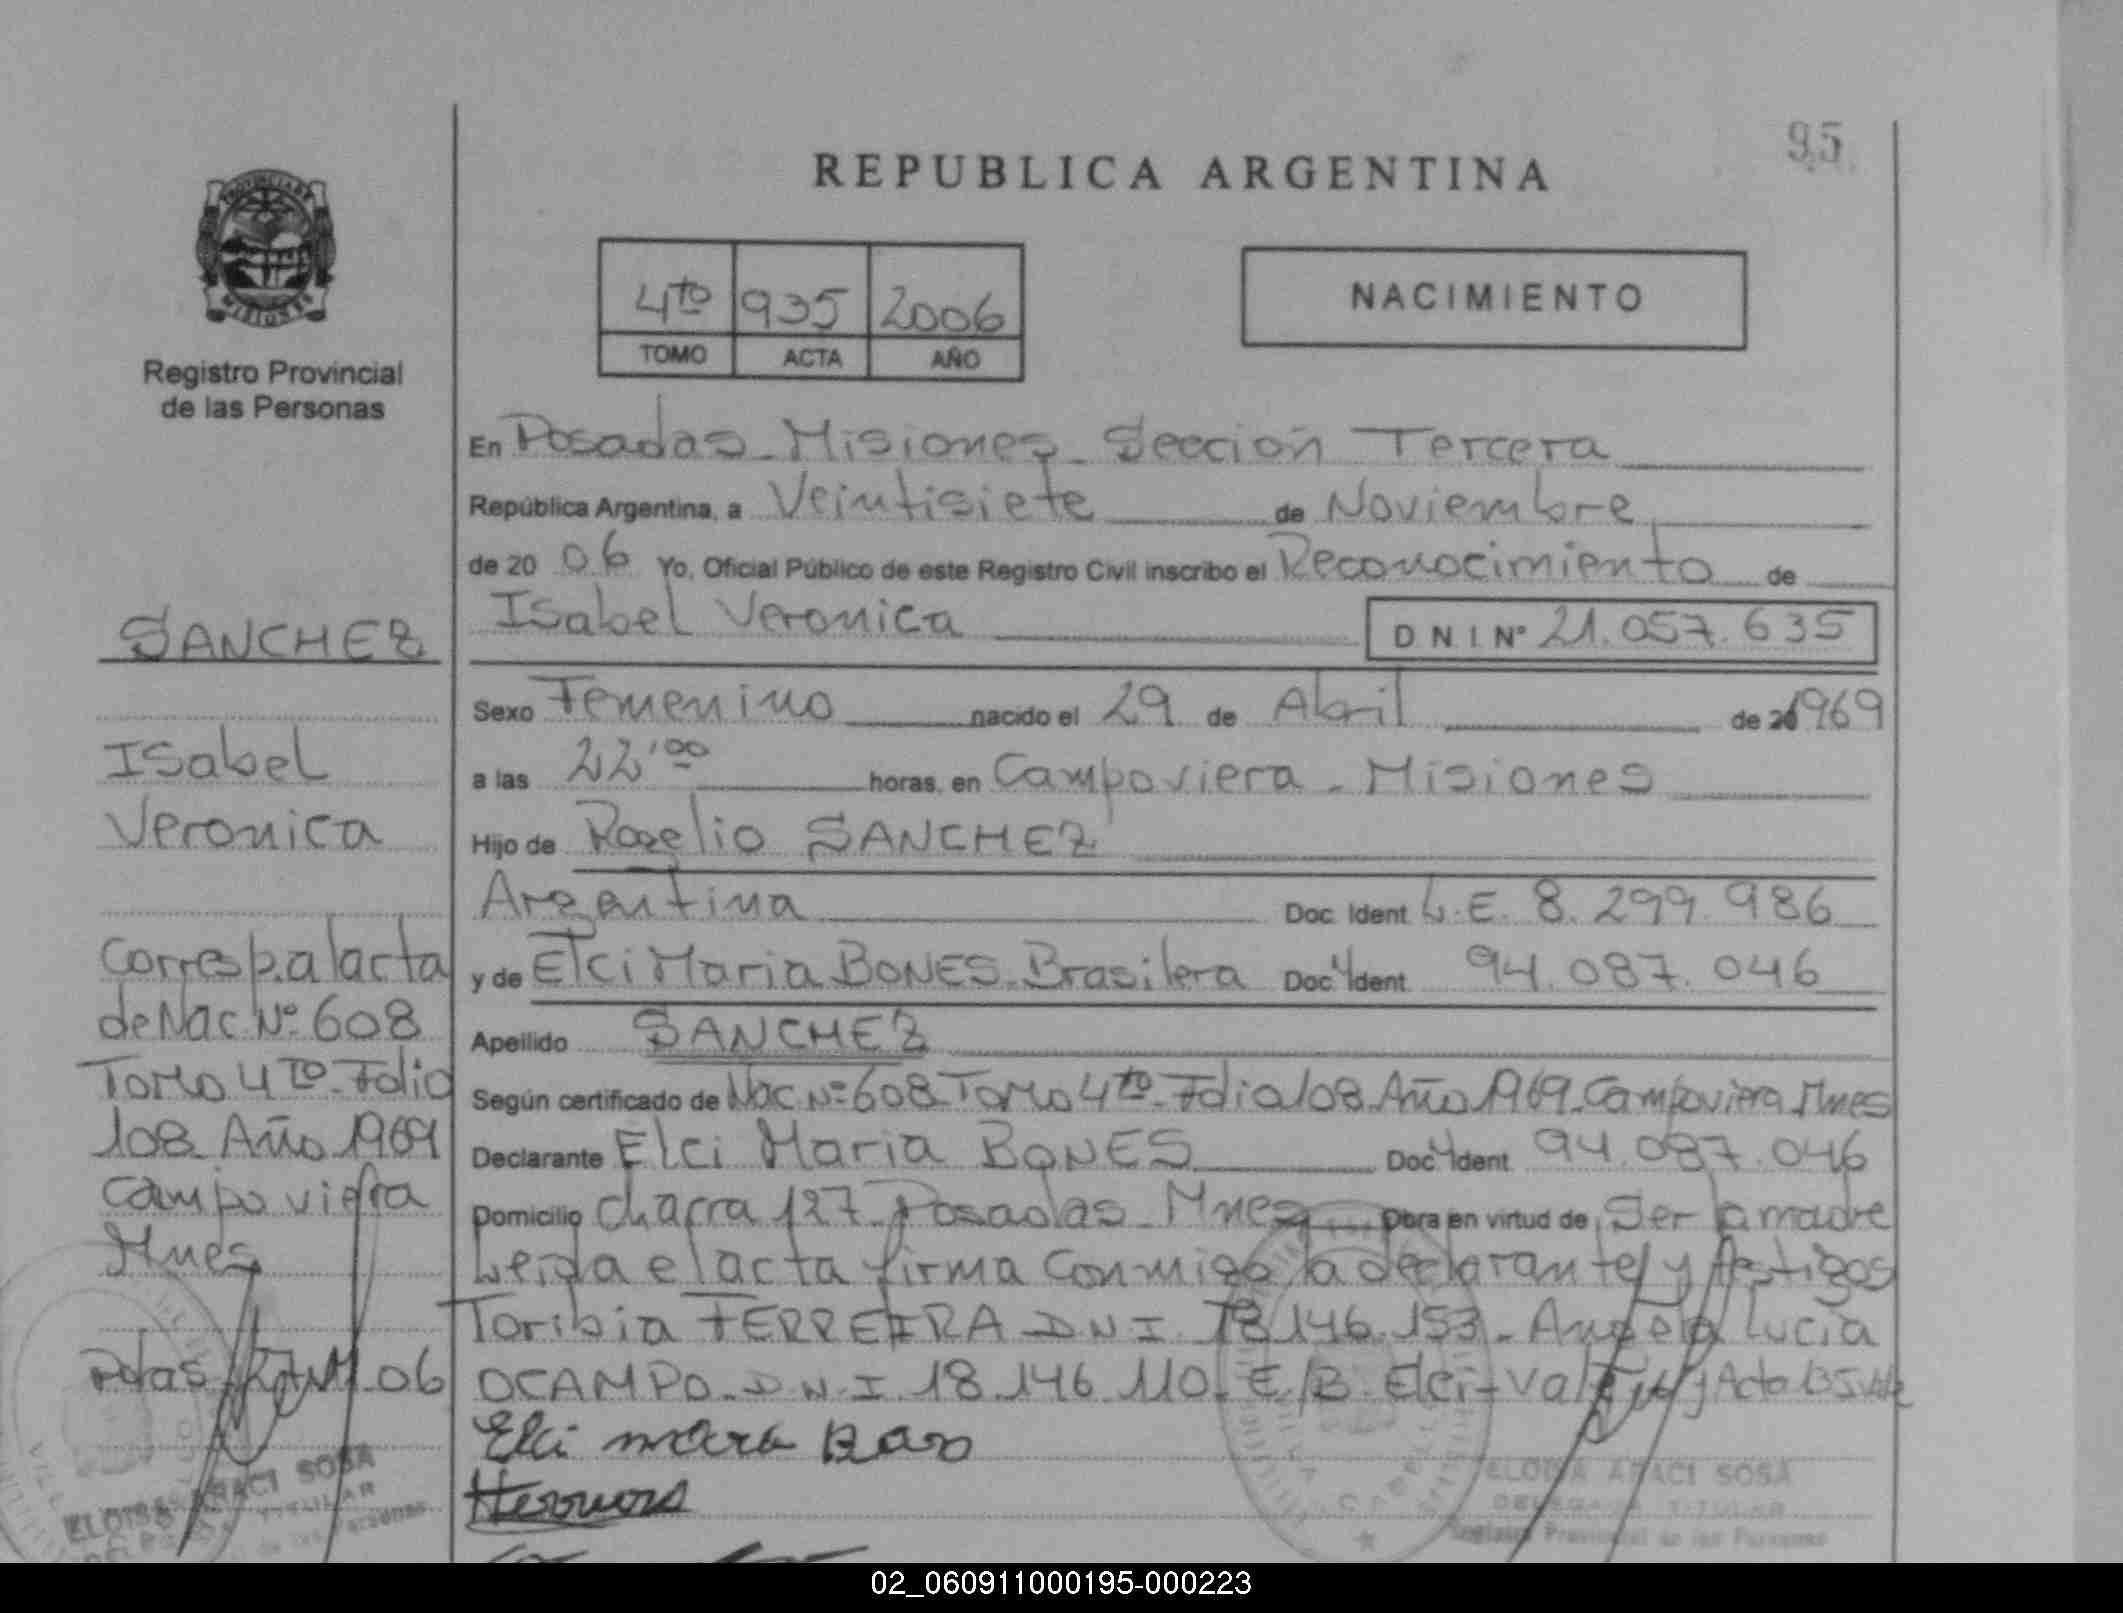 95
REPUBLICA ARGENTINA
4to 935 2006
TOMO ACTA AÑO
NACIMIENTO
Registro Provincial
de las Personas
En Posadas - Misiones - Sección Tercera
República Argentina, a Veintisiete de Noviembre
de 20 06 Yo, Oficial Público de este Registro Civil inscribo el Reconocimiento de
Isabel Veronica D N I Nº 21.057.635
Sexo Femenino nacido el 29 de Abril de 1969
a las 22'00 horas, en Campoviera - Misiones
Hijo de Rogelio SANCHEZ
Argentina Doc. Ident L.E. 8.299.986
y de Elci Maria BONES - Brasilera Doc. Ident 94.087.046
Apellido SANCHEZ
Según certificado de Nac Nº 608 Tomo 4to - Folio 108 Año 1969 - Campoviera Mnes
Declarante Elci Maria BONES Doc. Ident 94.087.046
Domicilio chacra 127 - Posadas - Mnes Obra en virtud de Ser la madre
Leida el acta firma conmigo la declarante y testigos
Toribia FERREIRA D N I 18.146.153 - Angela Lucia
OCAMPO - D.N.I. 18.146.110. E/B. Elci - Vale
Elci
SANCHEZ
Isabel
Veronica
Corresp. al acta
de Nac Nº 608
Tomo 4TO - Folio
108 Año 1969
Campo viera
Mnes
Pdas 06
ELOISA ARACI SOSA
TITULAR
de las Personas
ELOISA ARACI SOSA
DELEGADA TITULAR
Registro Provincial de las Personas
02_060911000195-000223